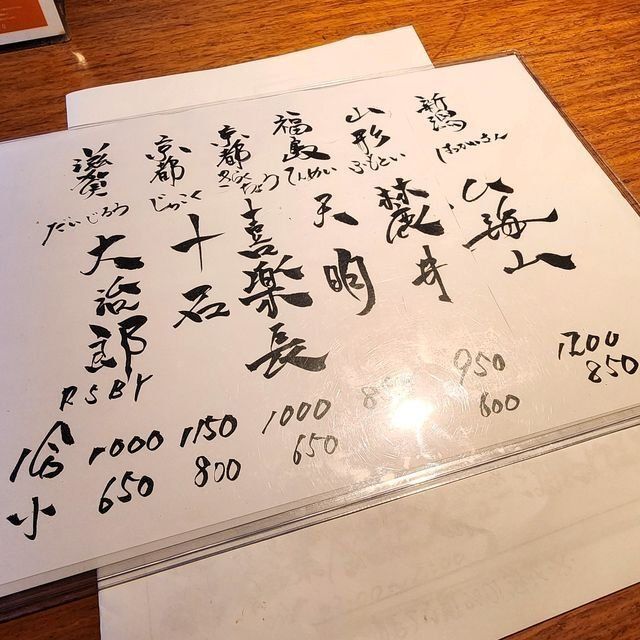 新潟
はっかいさん
八海山
1200
850
山形
ふもとい
麓井
950
600
福島
てんめい
天明
京都
きらくちょう
喜楽長
1000
650
京都
じゅっこく
十石
1150
800
滋賀
だいじろう
大治郎
RSBY
1000
650
合
小